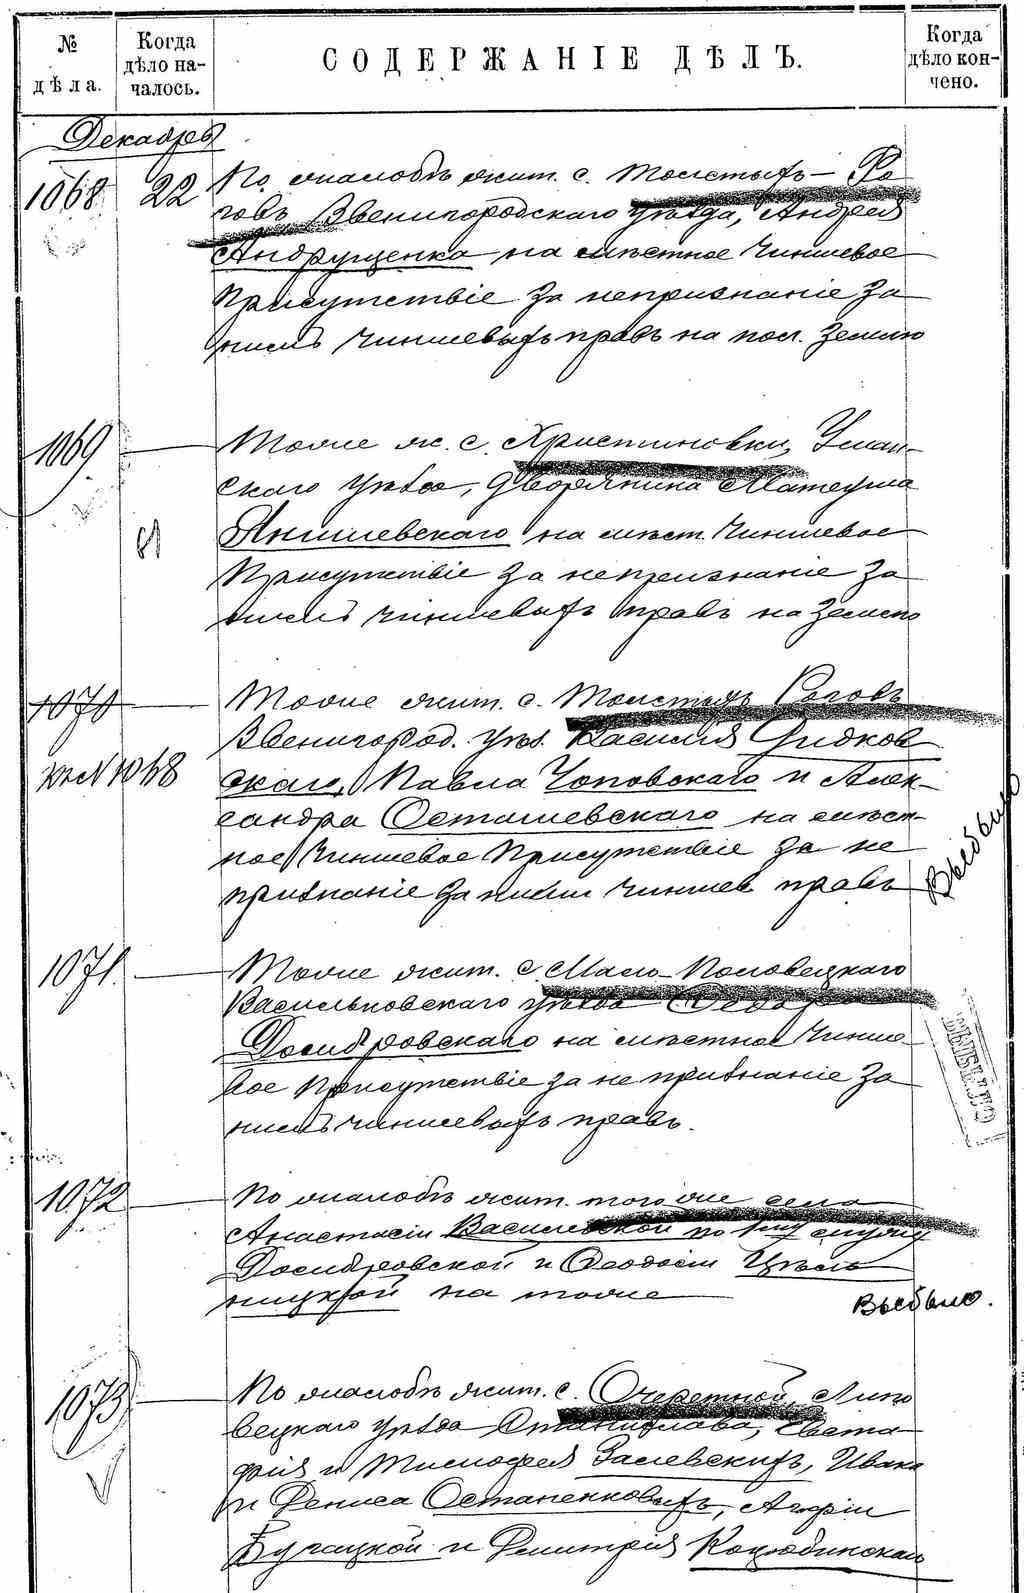 № дѣла.
Когда дѣло началось.
СОДЕРЖАНІЕ ДѢЛЪ.
Когда дѣло кончено.
Декабрь
1068 22 По жалобѣ жит. с. Толстыхъ-Ро
говъ Звенигородскаго уѣзда, Андрея
Андрущенка на мѣстное Чиншевое
Присутствіе за непризнаніе за
нимъ чиншевыхъ правъ на пос. землю
1069 Тоже ж. с. Христиновки, Уман-
скаго уѣзда, дворянина Матеуша
Янишевскаго на мѣст. Чиншевое
Присутствіе за непризнаніе за
нимъ чиншевыхъ правъ на землю
1070 Тоже жит. с. Толстыхъ Роговъ
къ № 1068 Звенигород. уѣз. Василія Дидков
скаго, Павла Чоповскаго и Алек-
сандра Осташевскаго на мѣст-
ное Чиншевое Присутствіе за не
признаніе за ними чиншев правъ
Выбыло
1071. Тоже жит. с. Мало-Половецкаго
Васильковскаго уѣзда Ѳедора
Домбровскаго на мѣстное Чинше-
вое Присутствіе за не признаніе за
нимъ чиншевыхъ правъ.
ВЫБЫЛО
1072 По жалобѣ жит. того же села
Анастасіи Василевской по 1му мужу
Домбровской и Ѳеодосіи Цѣль
ницкой на тоже
Выбыло.
1073 По жалобѣ жит. с. Очеретной, Липо
вецкаго уѣзда Станислава, Евста-
фія и Тимофея Залевскихъ, Ивана
и Дениса Остапенковыхъ, Агафіи
Бучацкой и Дмитрія Коцюбинскаго